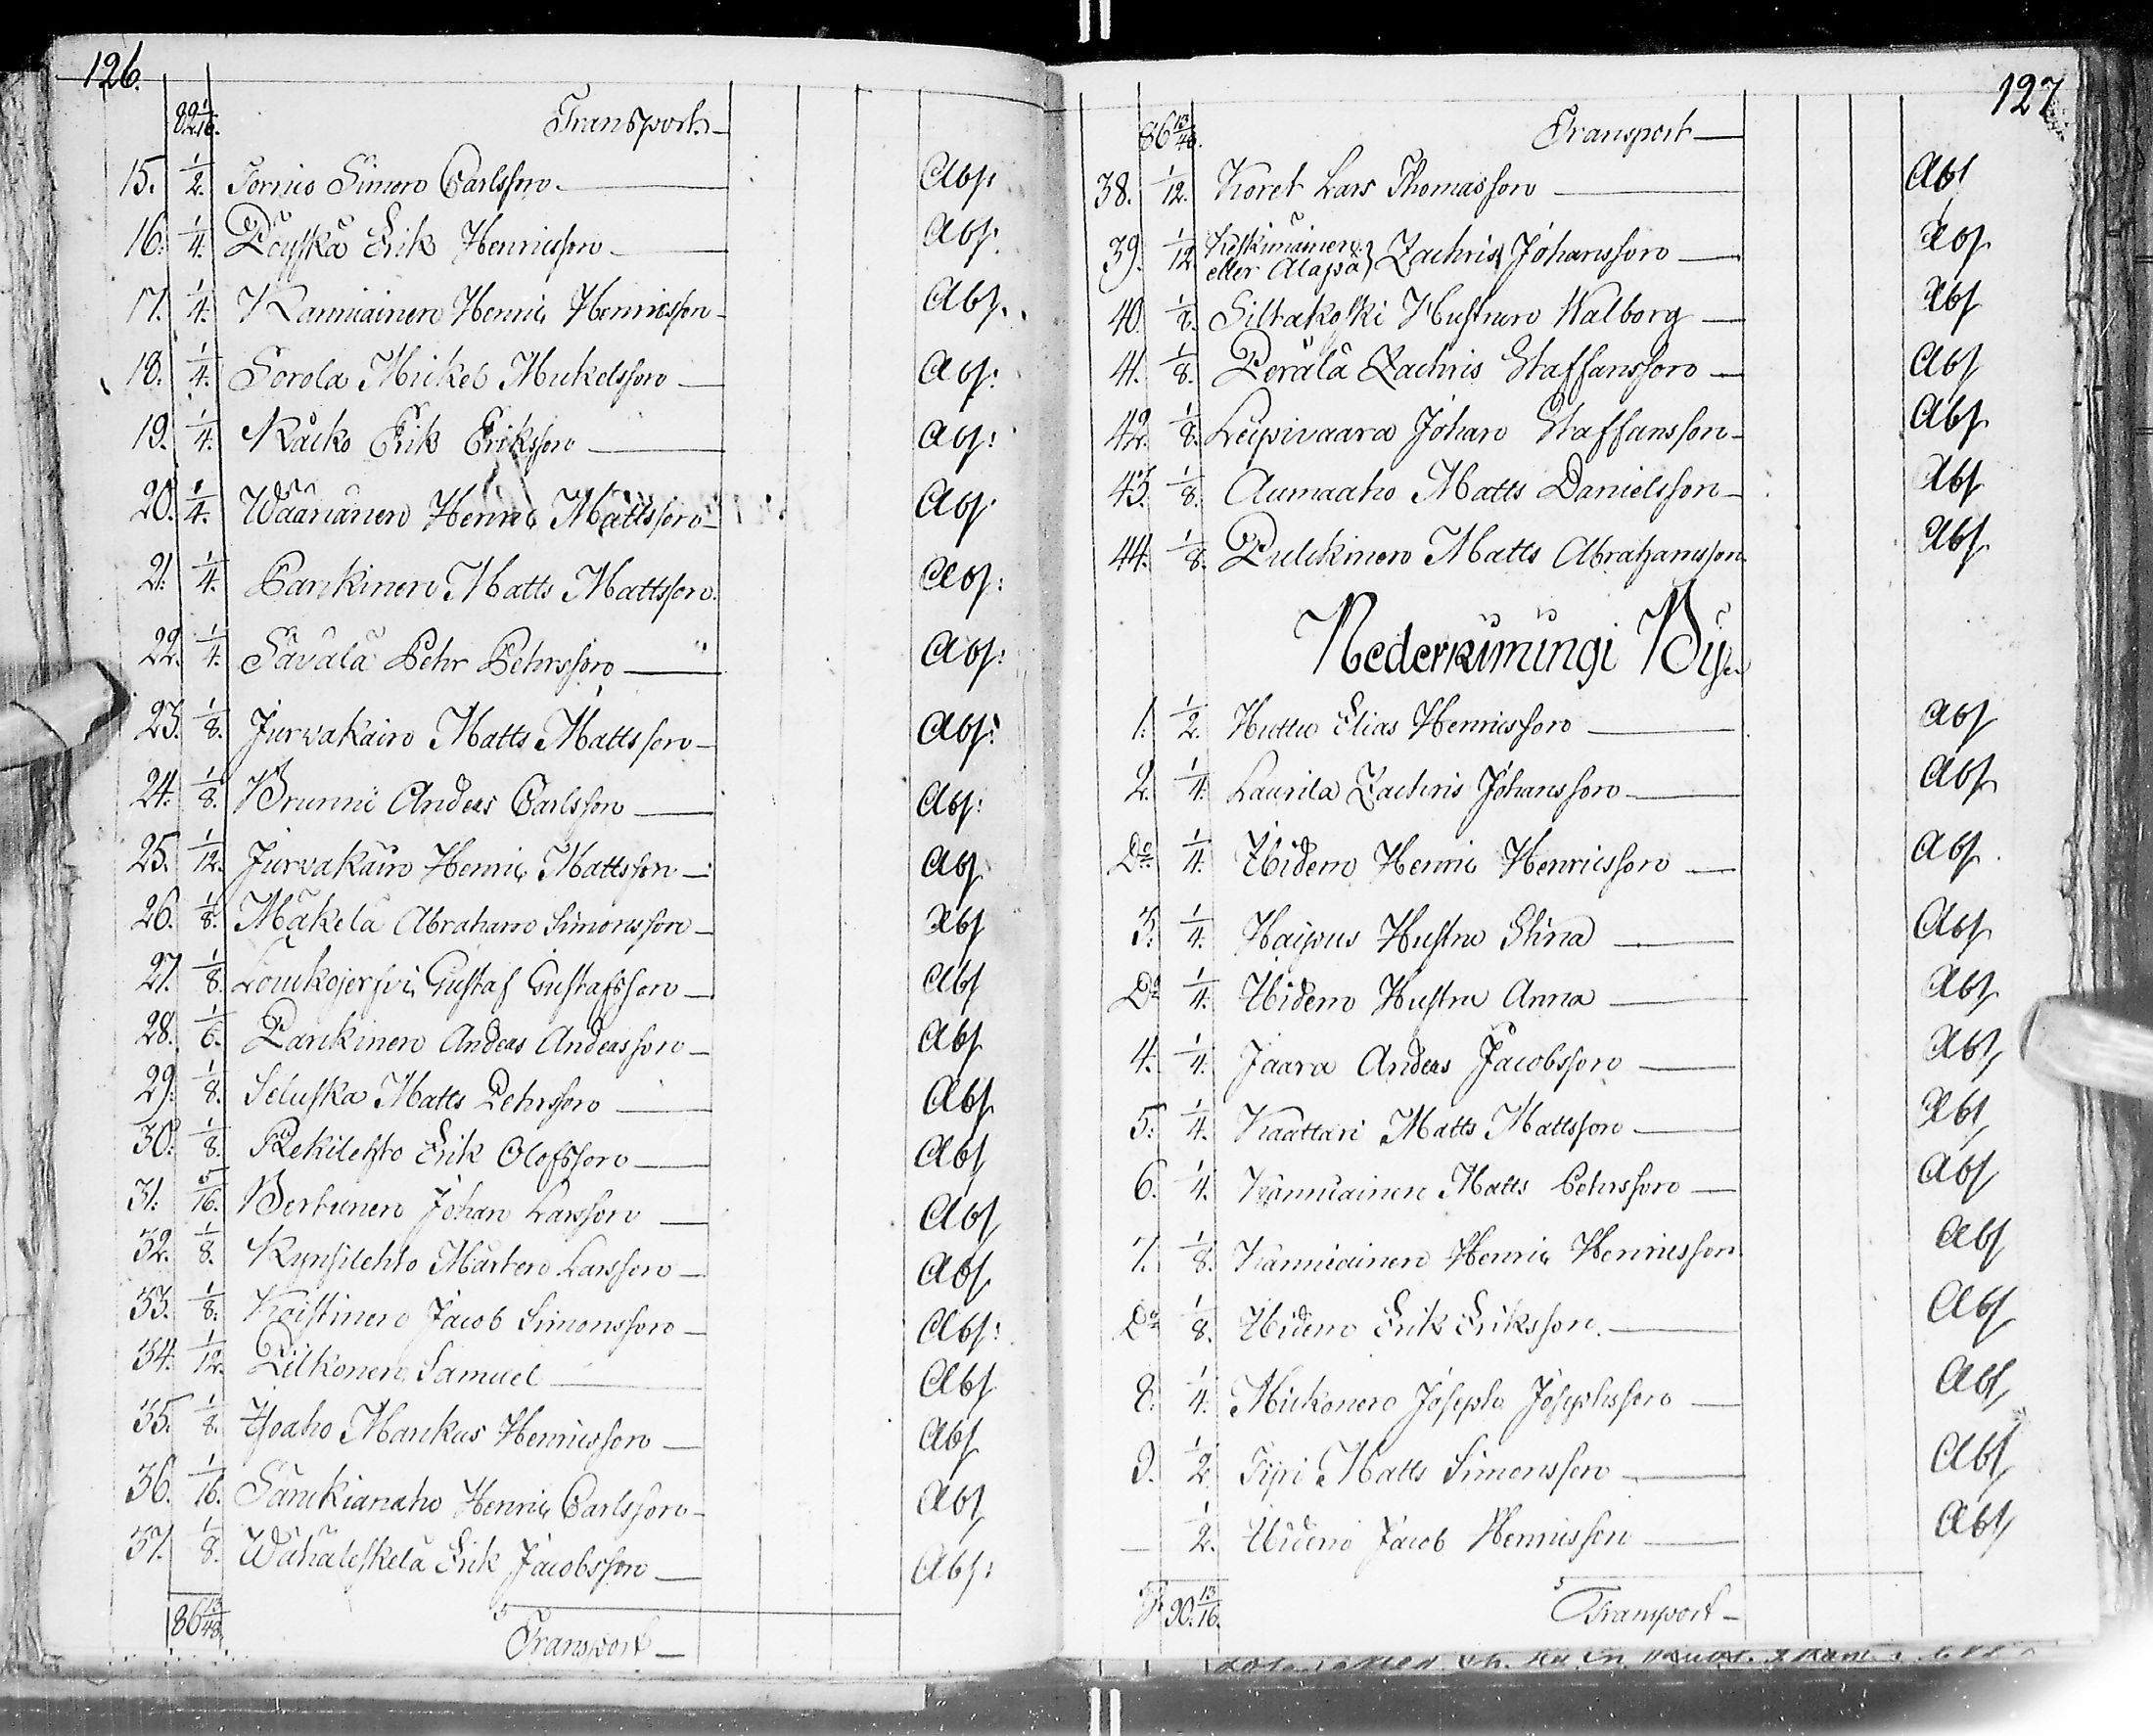 126.
82 1/16. Transport.
15. 1/2. Tornio Simon Carlsson Abs:
16. 1/4. Pöyskä Erik Henricsson Abs:
17. 1/4. Kanniainen Henric Henricsson Abs:
18. 1/4. Sorola Mickel Mickelsson Abs:
19. 1/4. Räcko Erik Eriksson Abs:
20. 1/4. Wäänänen Henric Mattsson Abs:
21. 1/4. Parckinen Matts Mattsson Abs:
22. 1/4. Säväla Pehr Pehrsson Abs:
23. 1/8. Jurvakain Matts Mattsson Abs:
24. 1/8. Brunni Anders Carlsson Abs:
25. 1/12. Jurvakain Henric Mattsson Abs:
26. 1/8. Mäkelä Abraham Simonsson Abs
27. 1/8. Louckojerfvi Gustaf Gustafsson Abs
28. 1/6. Parckinen Anders Andersson Abs
29. 1/8. Seluska Matts Pehrsson Abs
30. 1/8. Rekilehto Erik Olofsson Abs
31. 5/16. Bertunen Johan Larsson Abs
32. 1/8. Kynsilehto Mårten Larsson Abs
33. 1/8. Koistinen Jacob Simonsson Abs:
34. 1/12. Pilkonen Samuel Abs
35. 1/8. Isoaho Marckus Henricsson Abs
36. 1/16. Särckianaho Henric Carlsson Abs
37. 1/8. Wähäleskelä Erik Jacobsson Abs:
86 13/48. Transport
127
86 13/48. Transport
38. 1/12. Koret Lars Thomasson Abs
39. 1/12. Keskimäinen eller Alapää Zachris Johansson Abs
40. 1/2. Siltakoski Hustrun Walborg Abs
41. 1/8. Perälä Zachris Staffansson Abs
42. 1/8. Leipivaara Johan Staffansson Abs
43. 1/8. Aumaaho Matts Danielsson Abs
44. 1/8. Pulckinen Matts Abrahamsson Abs
Nederkimingi By
1. 1/2. Huttu Elias Henricsson Abs
2. 1/4. Laurila Zachris Johansson Abs
Do 1/4. Ibidem Henric Henricsson Abs
3. 1/4. Haipus Hustru Stina Abs
Do 1/4. Ibidem Hustru Anna Abs
4. 1/4. Jaara Anders Jacobsson Abs
5. 1/4. Kaattari Matts Mattsson Abs
6. 1/4. Kanniainen Matts Pehrsson Abs
7. 1/8. Kanniainen Henric Henricsson Abs
Do 1/8. Ibidem Erik Eriksson Abs
8. 1/4. Mickonen Joseph Josephsson Abs
9. 1/2. Tipi Matts Simonsson Abs
— 1/2. Ibidem Jacob Henricsson Abs
90. 13/16. Transport